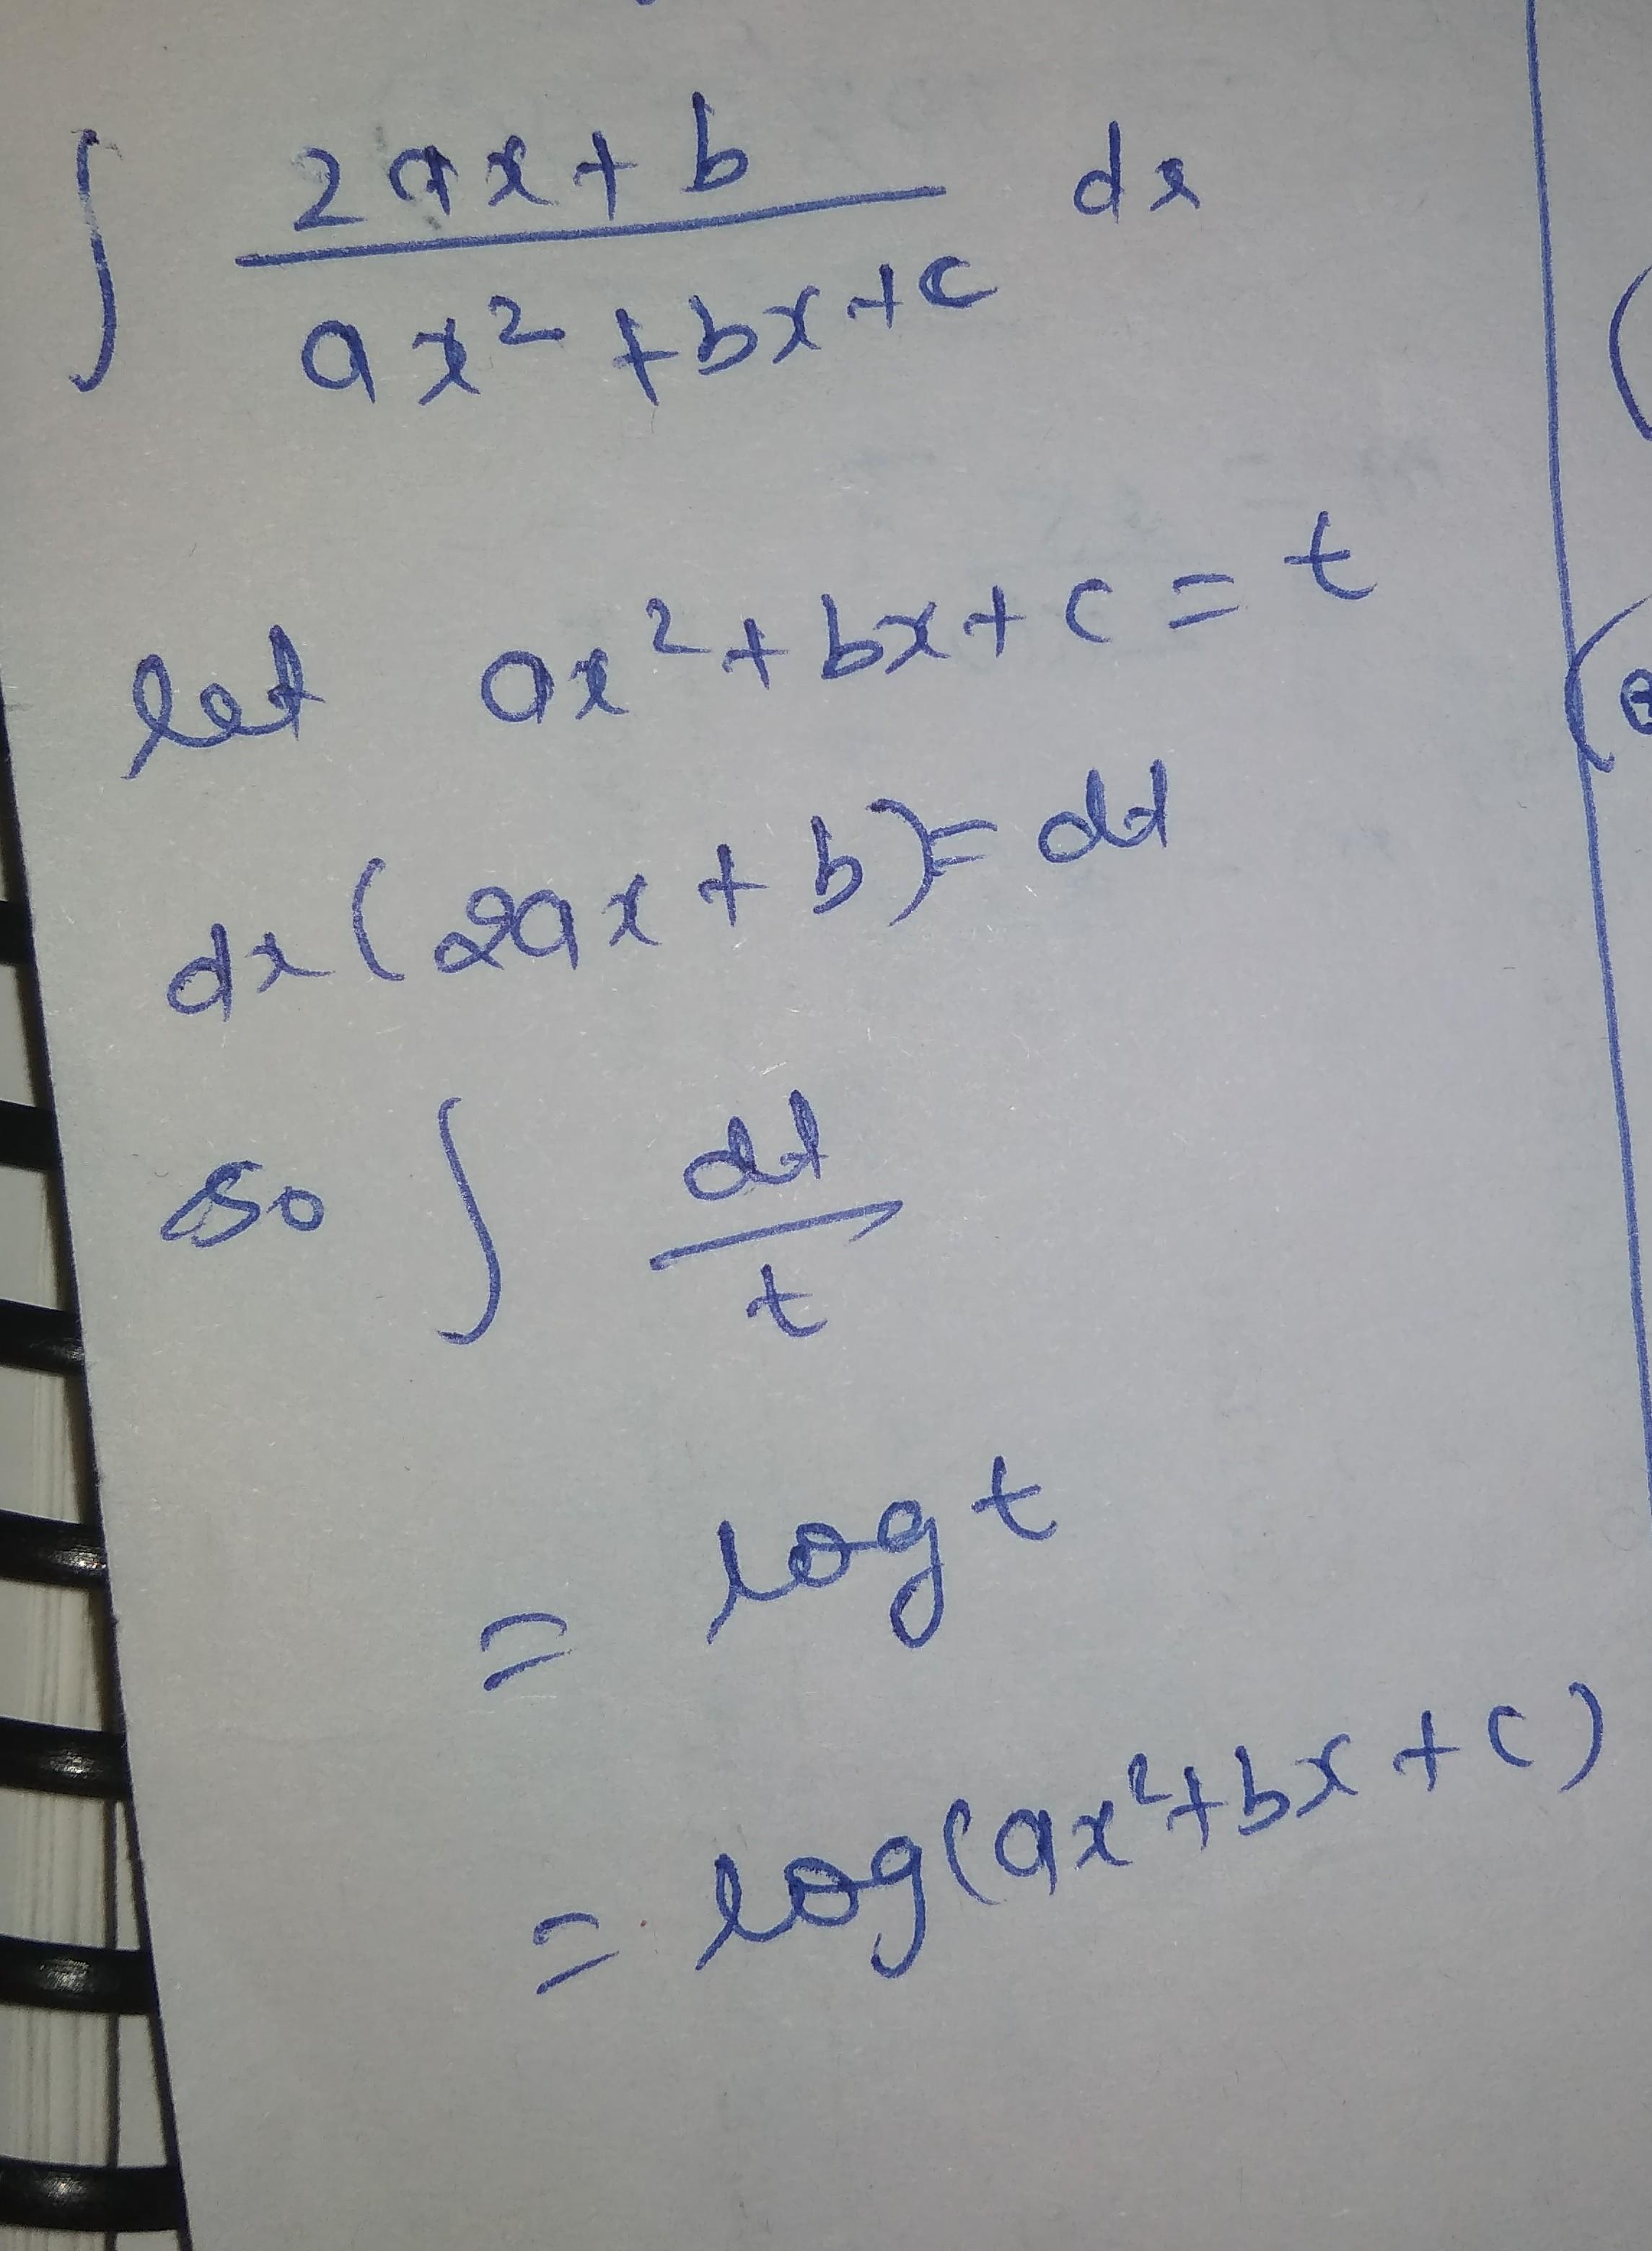 ∫ (2ax + b)/(ax² + bx + c) dx
let ax² + bx + c = t
dx (2ax + b) = dt
so ∫ dt/t
= log t
= log(ax² + bx + c)